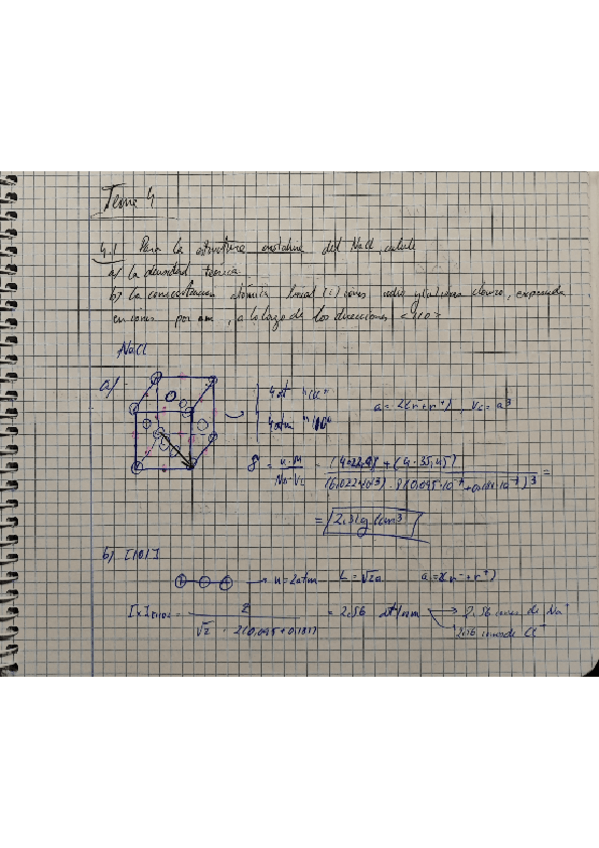 Tema 4
4.1 Para la estructura cristalina del NaCl, calcule
a) La densidad teórica
b) La concentración atómica lineal (i) iones sodio y (ii) iones cloruro, expresada
en iones por nm, a lo largo de las direcciones <110>
NaCl
a)
4 at "Cl-"
4 atm "Na+"
a = 2(r⁻+r⁺), Vc = a³
δ = n·M / Na·Vc = (4·22,98 + (4·35,45) / (6,022·10²³)·8(0,095·10⁻⁷+0,181·10⁻⁷)³ =
= 2,31 g/cm³
b) [101]
→ n=2atm L=√2a a=2(r⁻+r⁺)
= 2 / √2 · 2(0,095+0,181) = 2,56 at/nm → 2,56 iones de Na⁺
2,56 iones de Cl⁻